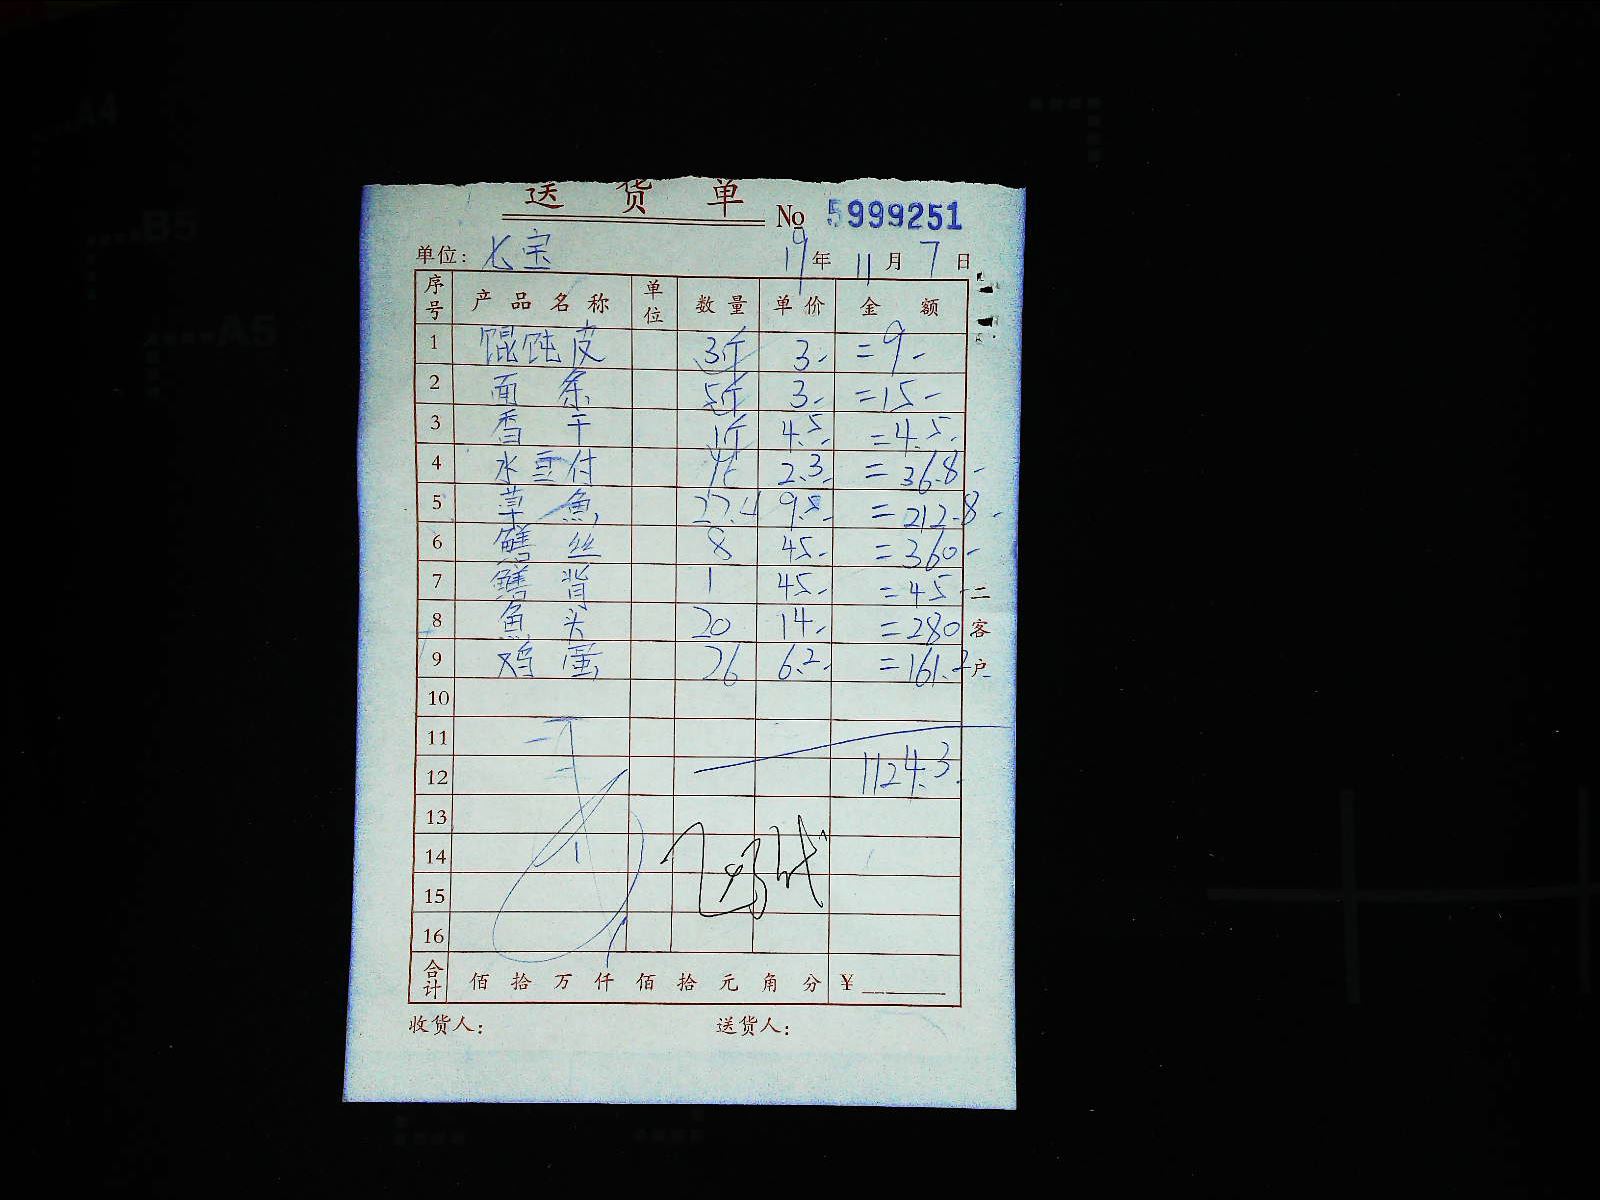 送货单 No 5999251
单位: 七宝 19年 11月 7日
序号 产品名称 单位 数量 单价 金额
1 馄饨皮 3斤 3- =9-
2 面条 5斤 3- =15-
3 香干 1斤 4.5- =4.5-
4 水豆付 2.3- =36.8-
5 草魚 9.8- =212.8-
6 鳝丝 8 45- =360-
7 鳝背 1 45- =45-
8 魚头 20 14- =280
9 鸡蛋 26 6.2- =161.2
10
11
12 1124.3
13
14
15
16
合计 佰拾万仟佰拾元角分 ¥
收货人: 送货人:
二客户
A4
B5
A5